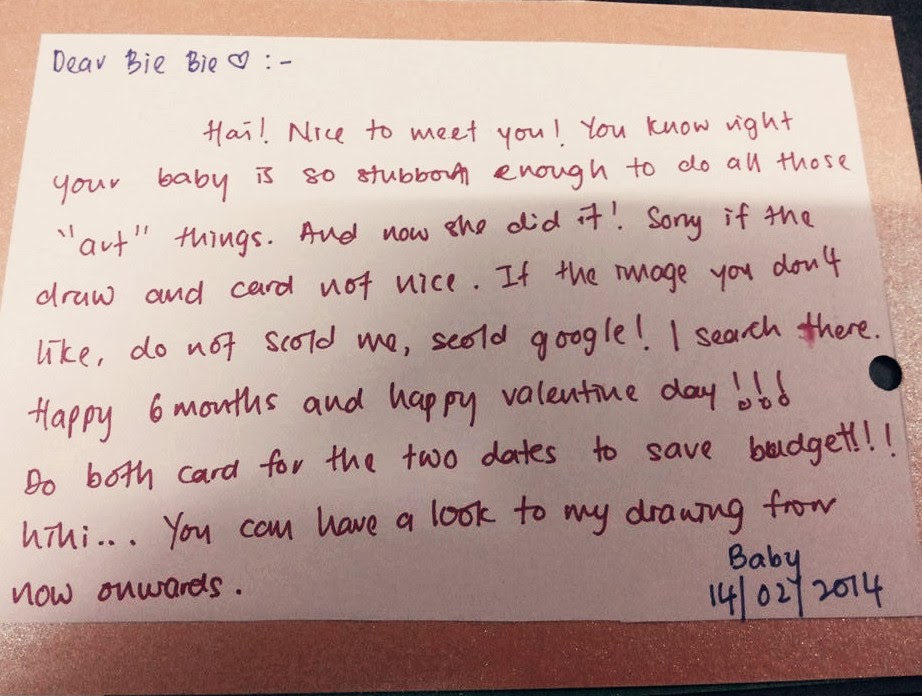 Dear Bie Bie ♡ :-
Hai! Nice to meet you! You know right
your baby is so stubborn enough to do all those
"art" things. And now she did it! Sorry if the
draw and card not nice. If the image you don't
like, do not scold me, scold google! I search there.
Happy 6 months and happy valentine day!!!
Do both card for the two dates to save budget!!!
hihi... You can have a look to my drawing from
now onwards.
Baby
14/02/2014